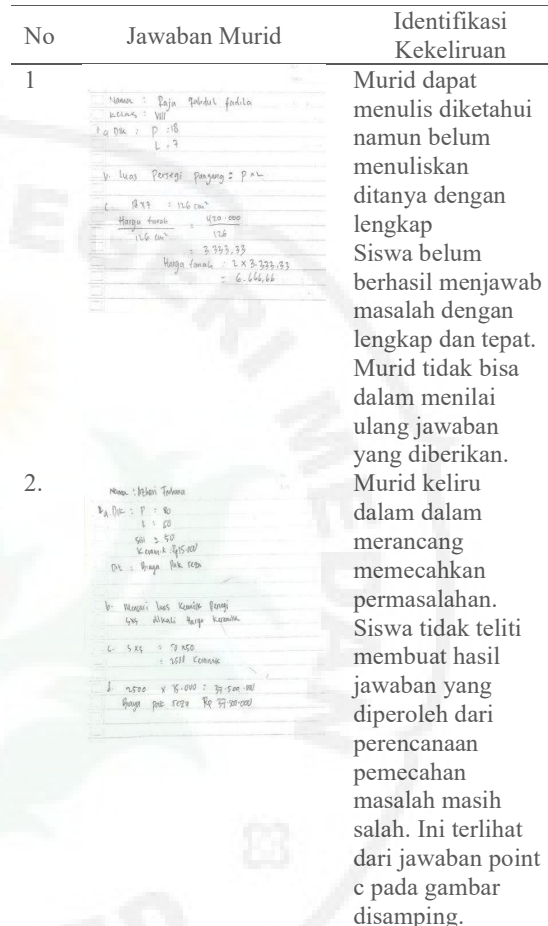 No Jawaban Murid Identifikasi Kekeliruan
1
Nama : Raja
Kelas : VIII
a Dik : P : 18
L : 7
b. luas Persegi Panjang = P x L
c. 18 x 7 = 126 cm²
Harga tanah = 420.000
126 cm² 126
= 3.333,33
Harga tanah = 2 x 3.333,33
= 6.666,66
Murid dapat
menulis diketahui
namun belum
menuliskan
ditanya dengan
lengkap
Siswa belum
berhasil menjawab
masalah dengan
lengkap dan tepat.
Murid tidak bisa
dalam menilai
ulang jawaban
yang diberikan.
2.
Nama :
A Dik : P : 80
sisi = 50
Dit : Biaya Pak
b. Mencari luas keramik
SxS dikali Harga keramik
c. S x S = 50 x 50
= 2500 keramik
d. 2500 x 15.000 = 37.500.000
Biaya pak
Murid keliru
dalam dalam
merancang
memecahkan
permasalahan.
Siswa tidak teliti
membuat hasil
jawaban yang
diperoleh dari
perencanaan
pemecahan
masalah masih
salah. Ini terlihat
dari jawaban point
c pada gambar
disamping.